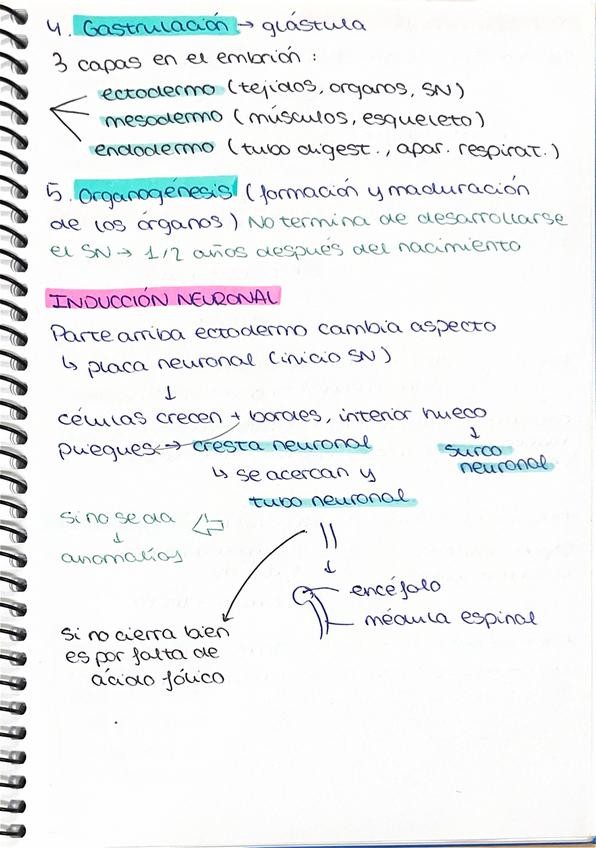 4. Gastrulación → glástula
3 capas en el embrión :
ectodermo (tejidos, organos, SN)
mesodermo (músculos, esqueleto)
endodermo (tubo digest., apar. respirat.)
5. Organogénesis (formación y maduración
de los órganos) No termina de desarrollarse
el SN → 1/2 años después del nacimiento
INDUCCIÓN NEURONAL
Parte arriba ectodermo cambia aspecto
↳ placa neuronal (inicio SN)
↓
células crecen + bordes, interior hueco
pliegues → cresta neuronal
↓
surco
neuronal
↳ se acercan y
tubo neuronal
si no se da
↓
anomalías
↓
encéfalo
médula espinal
si no cierra bien
es por falta de
ácido fólico